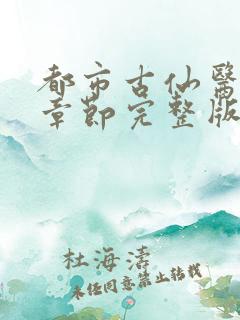 都市古仙醫
章節完整版
杜海濤
未任同意禁止转载